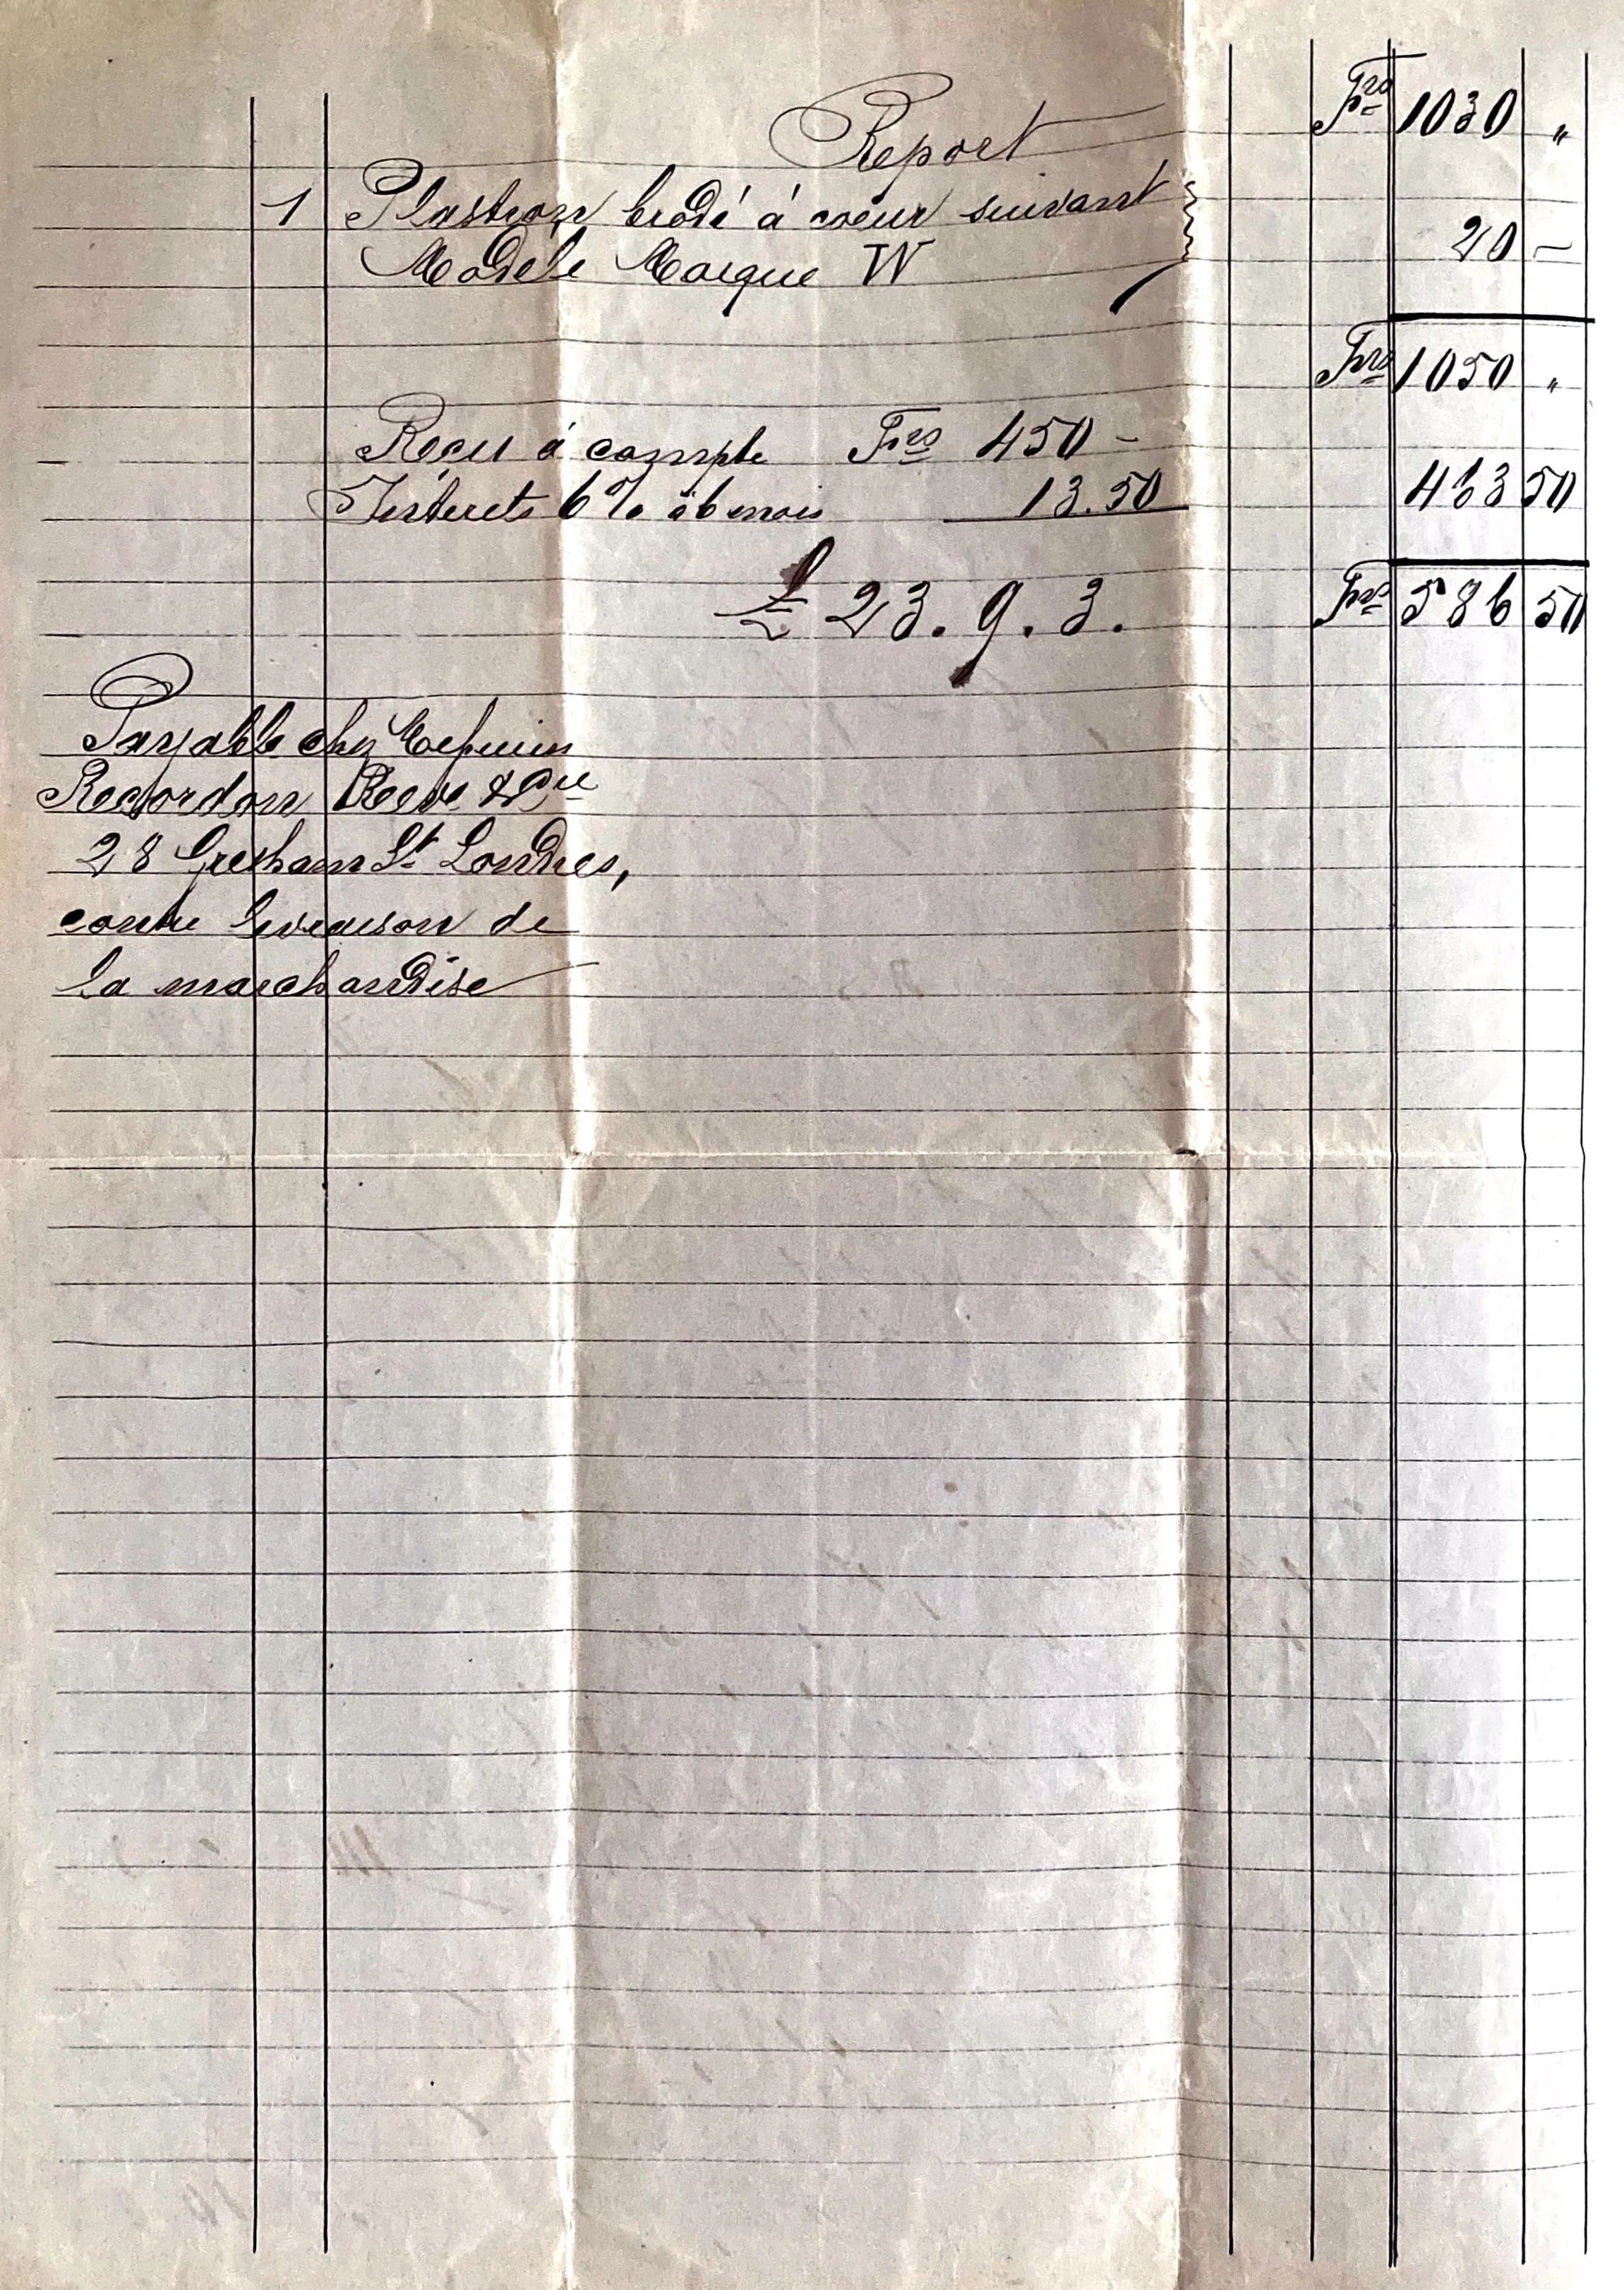 Report Frs 1030 "
1 Plastron brodé à coeur suivant
Modèle Marque W 20 —
Frs 1050 "
Reçu à compte Frs 450 —
Interets 6% à 6 mois 13.50 463 50
£ 23. 9. 3. Frs 586 50
Payable chez
Recordon Reeve & Cie
28 Gresham St Londres,
contre livraison de
la marchandise